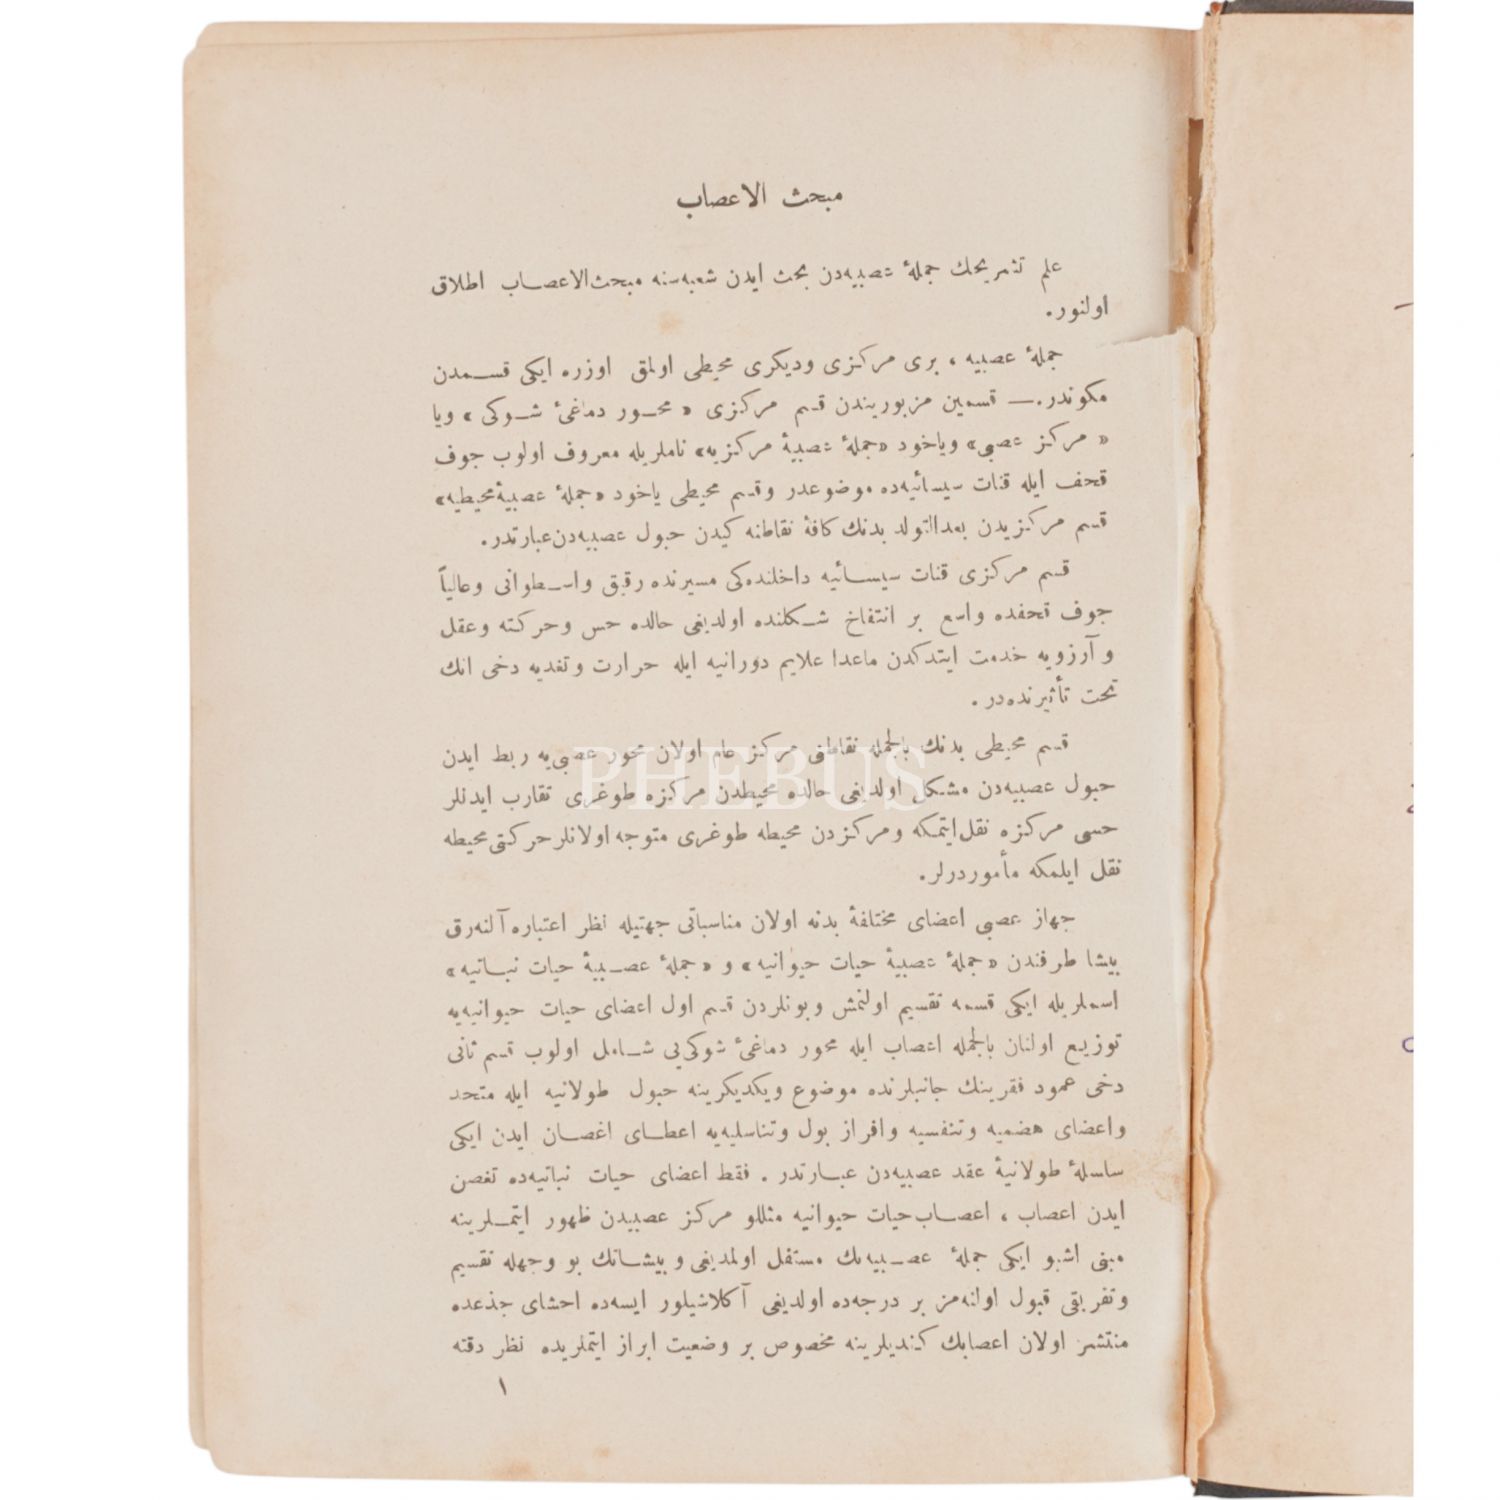 مبحث الاعصاب
علم تشریحك جملۀ عصبیه‌دن بحث ایدن شعبه‌سنه مبحث‌الاعصاب اطلاق
اولنور.
جملۀ عصبیه ، بری مرکزی ودیکری محیطی اولمق اوزره ایکی قسمدن
مکوندر. — قسمین مزبوریندن قسم مرکزی « محور دماغیٔ شوکی » ویا
« مرکز عصبی» ویاخود «جملۀ عصبیۀ مرکزیه» ناملریله معروف اولوب جوف
قحف ایله قنات سیسائیه‌ده موضوعدر وقسم محیطی یاخود «جملۀ عصبیۀ محیطیه»
قسم مرکزیدن بعدالتولد بدنك کافۀ نقاطنه کیدن حبول عصبیه‌دن عبارتدر.
قسم مرکزی قنات سیسائیه داخلنده‌کی مسیرنده رقیق واسطوانی وعالیاً
جوف قحفده واسع بر انتفاخ شکلنده اولدیغی حالده حس وحرکته وعقل
و آرزویه خدمت ایتدکدن ماعدا علایم دورانیه ایله حرارت وتغدیه دخی انك
تحت تأثیرنده‌در .
قسم محیطی بدنك بالجمله نقاطنی مرکز عام اولان محور عصبی‌یه ربط ایدن
حبول عصبیه‌دن متشکل اولدیغی حالده محیطدن مرکزه طوغری تقارب ایدنلر
حسی مرکزه نقل ایتمکه ومرکزدن محیطه طوغری متوجه اولانلر حرکتی محیطه
نقل ایلمکه مأموردرلر.
جهاز عصبی اعضای مختلفۀ بدنه اولان مناسباتی جهتیله نظر اعتباره آلنه‌رق
بیشا طرفندن «جملۀ عصبیۀ حیات حیوانیه» و «جملۀ عصبیۀ حیات نباتیه»
اسملریله ایکی قسمه تقسیم اولنمش وبونلردن قسم اول اعضای حیات حیوانیه‌یه
توزیع اولنان بالجمله اعصاب ایله محور دماغیٔ شوکی‌یی شامل اولوب قسم ثانی
دخی عمود فقرینك جانبلرنده موضوع ویکدیکرینه حبول طولانیه ایله متحد
واعضای هضمیه وتنفسیه وافراز بول وتناسلیه‌یه اعطای اغصان ایدن ایکی
سلسلۀ طولانیۀ عقد عصبیه‌دن عبارتدر . فقط اعضای حیات نباتیه‌ده تغصن
ایدن اعصاب ، اعصاب حیات حیوانیه مثللو مرکز عصبیدن ظهور ایتملرینه
مبنی اشبو ایکی جملۀ عصبیه‌نك مستقل اولمدیغی و بیشانك بو وجهله تقسیم
وتفریقی قبول اولنه‌مز بر درجه‌ده اولدیغی آکلاشیلور ایسه‌ده احشای جذعده
منتشر اولان اعصابك کندیلرینه مخصوص بر وضعیت ابراز ایتملریده نظر دقته
١
PHEBUS